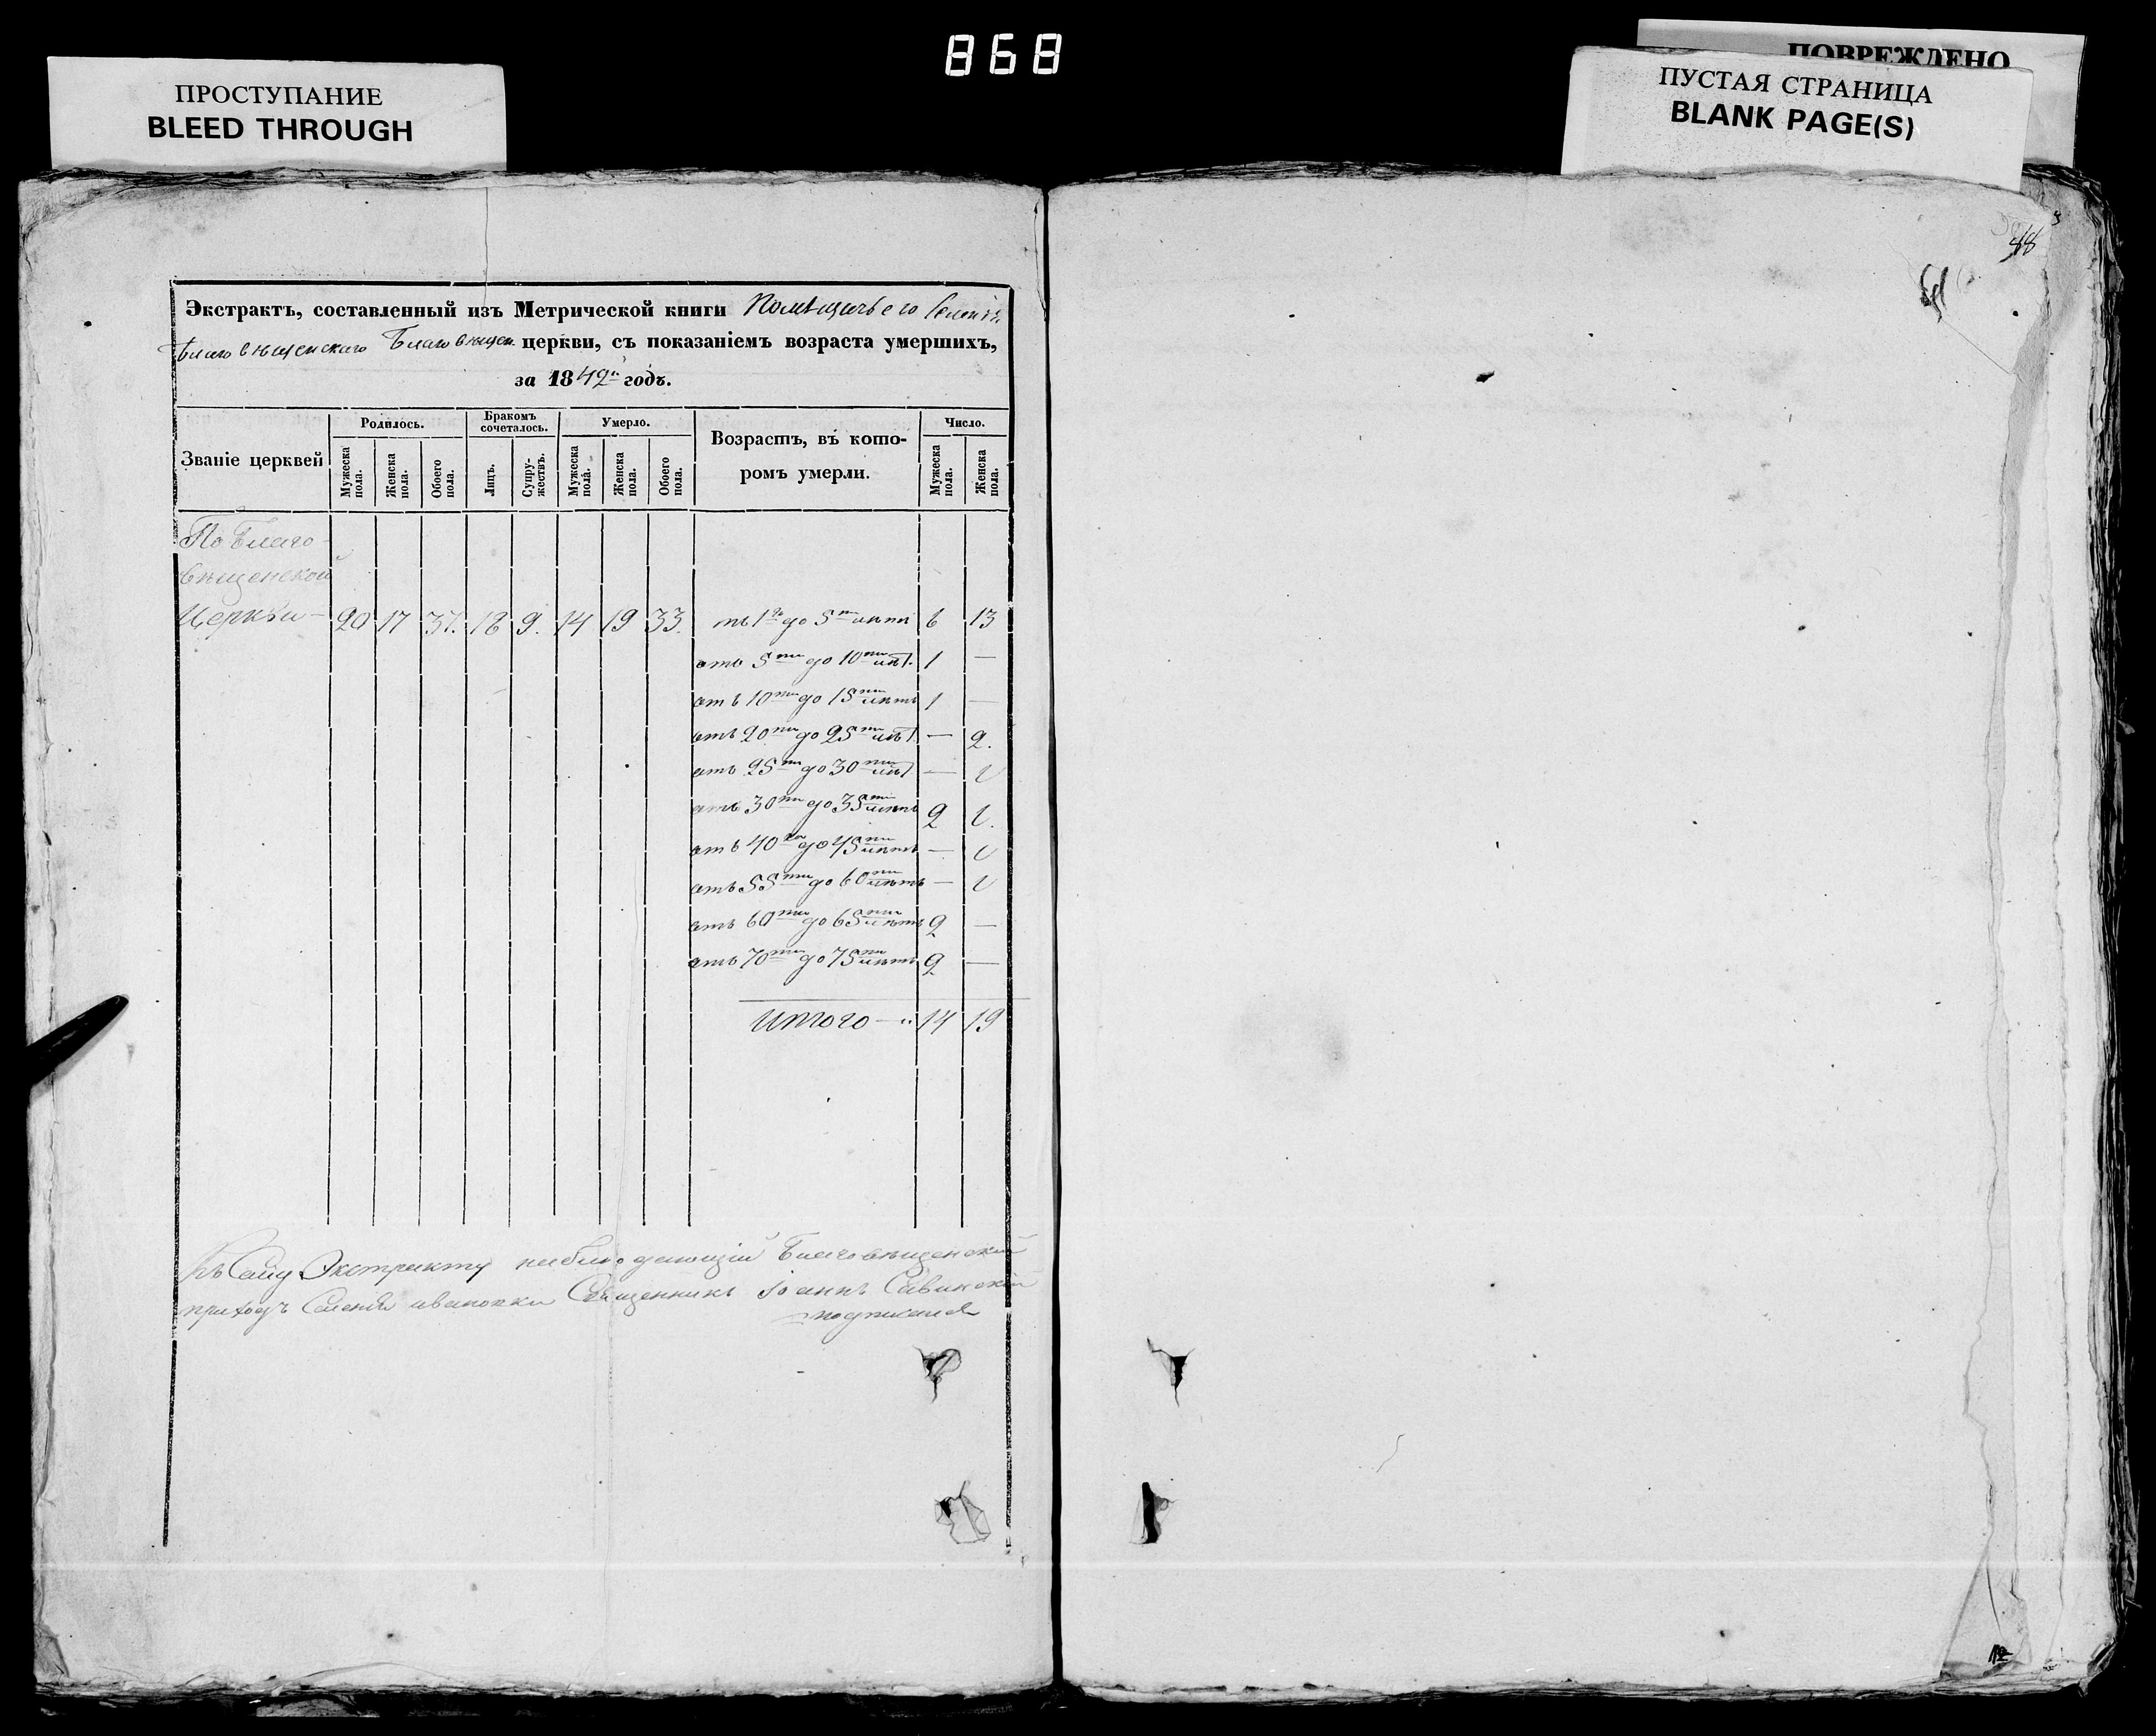 868
ПРОСТУПАНИЕ
BLEED THROUGH
ПОВРЕЖДЕНО
ПУСТАЯ СТРАНИЦА
BLANK PAGE(S)
Экстрактъ, составленный изъ Метрической книги Помѣщичьего Селенія
Благовѣщенского Благовѣщен. церкви, съ показаніемъ возраста умершихъ,
за 1842й годъ.
Званіе церквей
Родилось.
Мужеска пола.
Женска пола.
Обоего пола.
Бракомъ сочеталось.
Лицъ.
Супружествъ.
Умерло.
Мужеска пола.
Женска пола.
Обоего пола.
Возрастъ, въ которомъ умерли.
Число.
Мужеска пола.
Женска пола.
По Благо-
вѣщенской
Церкви - 20 17 37. 18 9. 14 19 33. отъ 1го до 5ти лѣтъ 6 13
отъ 5ти до 10ти лѣт. 1 —
отъ 10ти до 15ти лѣтъ 1 —
отъ 20ти до 25ти лѣт. — 2.
отъ 25ти до 30ти лѣт. — 1
отъ 30ти до 35ти лѣтъ 2 1.
отъ 40ка до 45ти лѣтъ — 1
отъ 55ти до 60ти лѣтъ — 1
отъ 60ти до 65ти лѣтъ 2 —
отъ 70ти до 75ти лѣтъ 2 —
Итого — 14 19
Къ Сему Экстракту наблюдающій Благовѣщенскій
приходъ Селенія Ивановки Священникъ Іоаннъ Савинскій
подписался